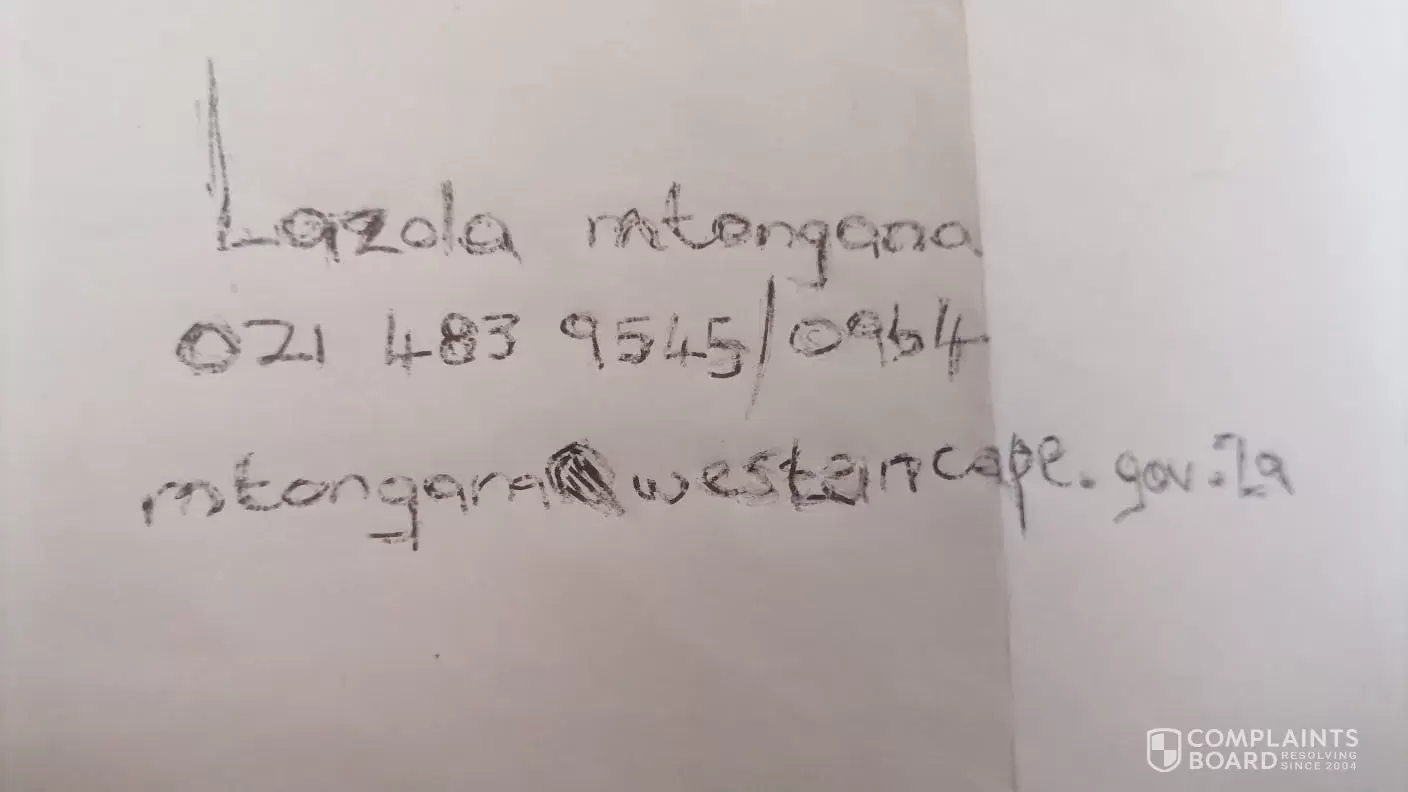 Lazola mtongana
021 483 9545/0964
mtongana@westerncape.gov.za
COMPLAINTS
BOARD RESOLVING
SINCE 2004